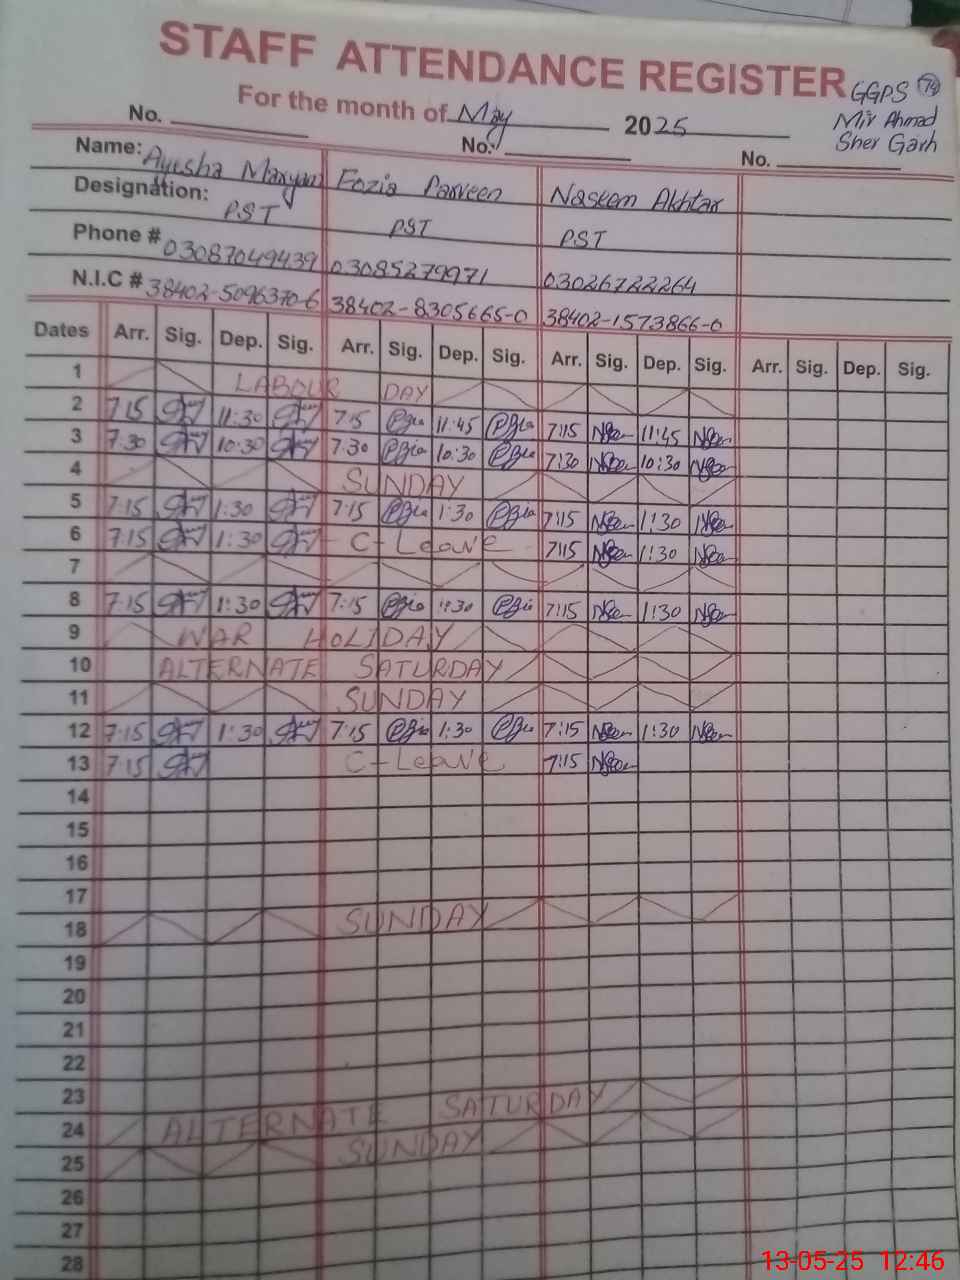 STAFF ATTENDANCE REGISTER
GGPS 74
Mir Ahmad
Sher Garh
For the month of May 2025
No. No: No.
Name: Ayesha Maryam Fozia Parveen Naseem Akhtar
Designation: PST PST PST
Phone # 03087049439 03085279971 03026722264
N.I.C # 38402-5096370-6 38402-8305665-0 38402-1573866-0
Dates Arr. Sig. Dep. Sig. Arr. Sig. Dep. Sig. Arr. Sig. Dep. Sig. Arr. Sig. Dep. Sig.
1 LABOUR DAY
2 7:15 11:30 7:15 11:45 7:15 11:45
3 7:30 10:30 7:30 10:30 7:30 10:30
4 SUNDAY
5 7:15 1:30 7:15 1:30 7:15 1:30
6 7:15 1:30 C-Leave 7:15 1:30
7
8 7:15 1:30 7:15 1:30 7:15 1:30
9 WAR HOLIDAY
10 ALTERNATE SATURDAY
11 SUNDAY
12 7:15 1:30 7:15 1:30 7:15 1:30
13 7:15 C-Leave 7:15
14
15
16
17
18 SUNDAY
19
20
21
22
23
24 ALTERNATE SATURDAY
25 SUNDAY
26
27
28
13-05-25 12:46